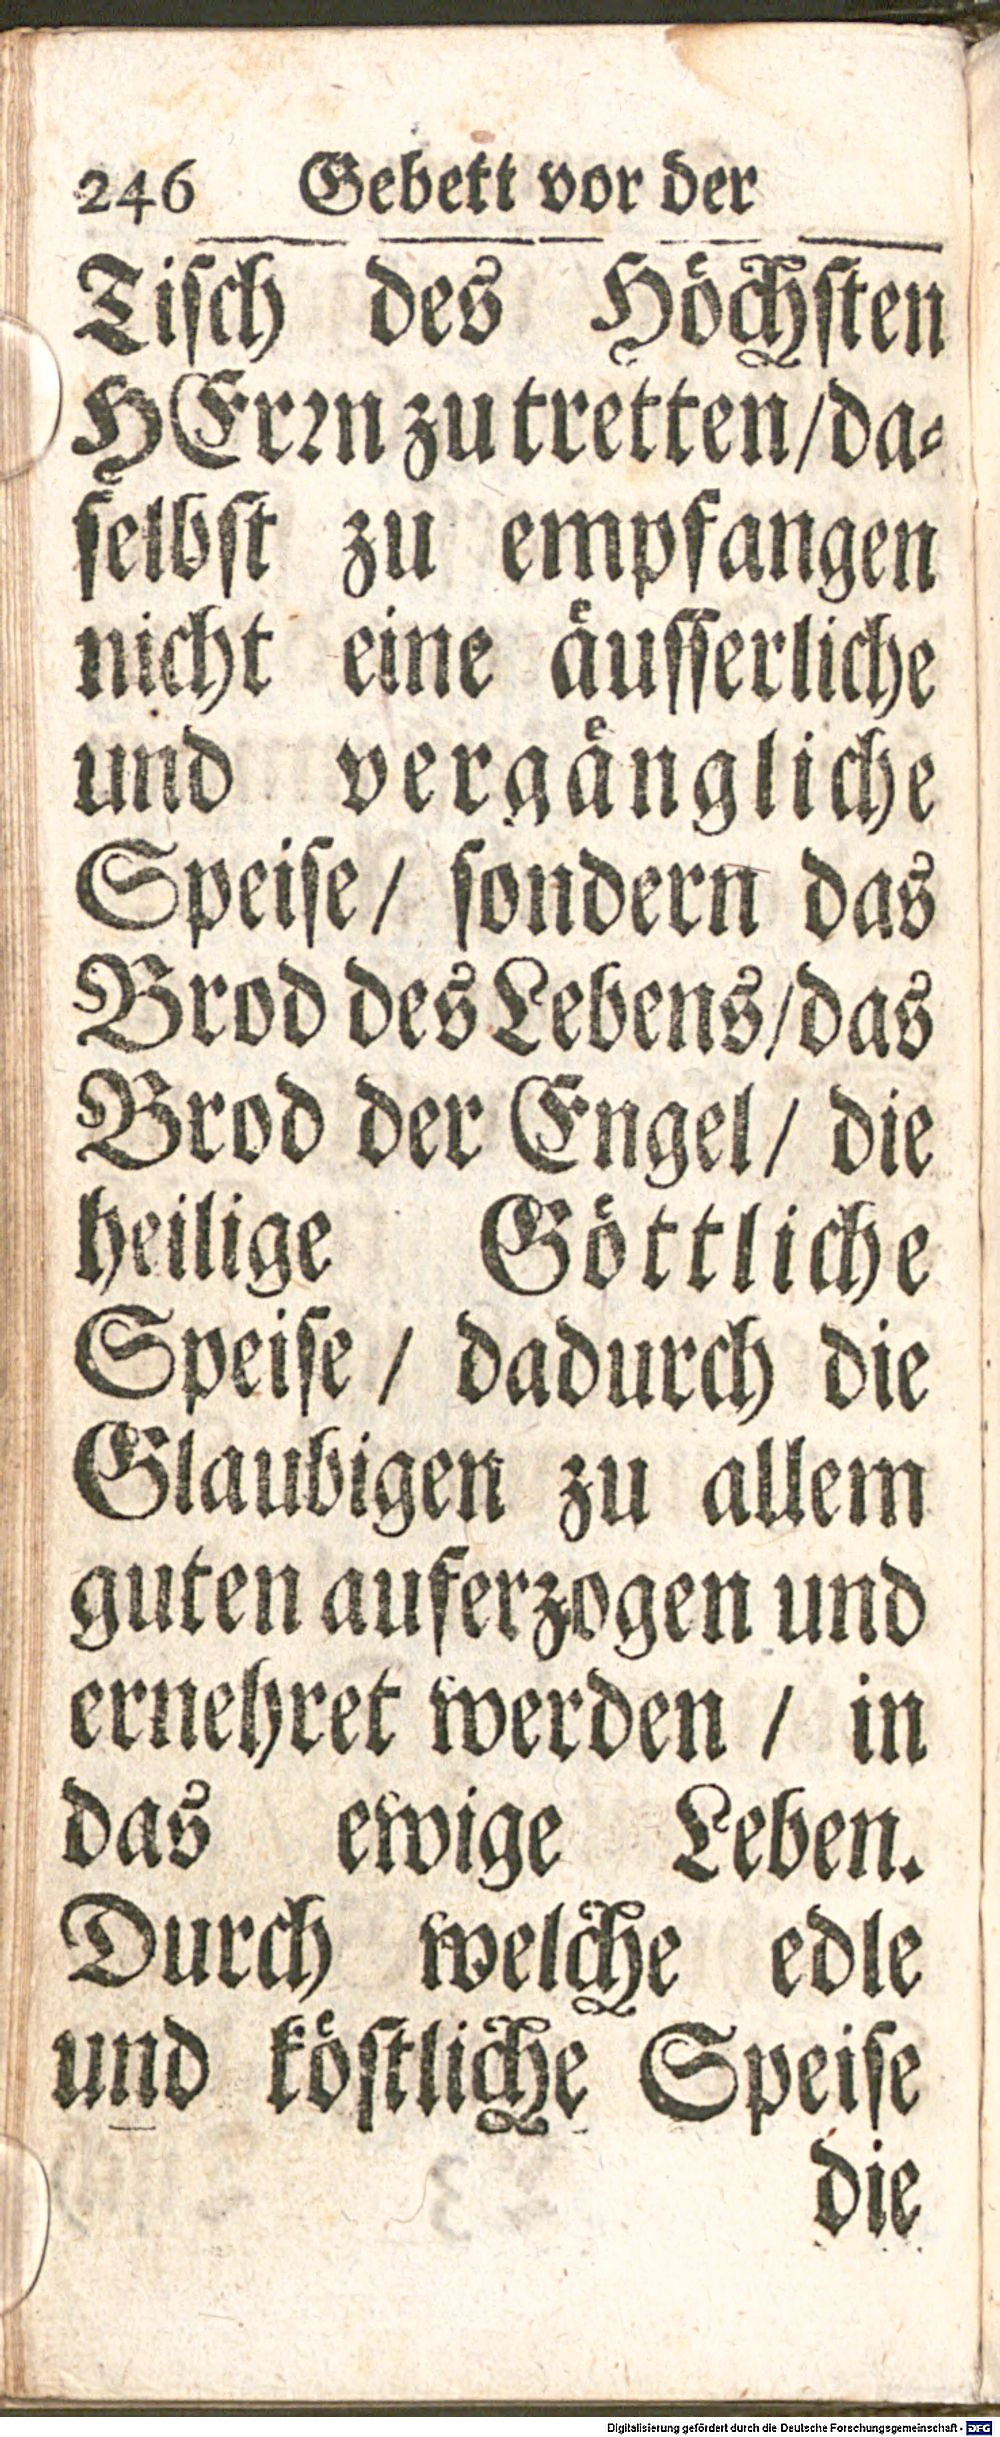 246 Gebett vor der
Tiſch des Höchſten
HErꝛn zu tretten/da⸗
ſelbſt zu empfangen
nicht eine äuſſerliche
und vergängliche
Speiſe/ ſondern das
Brod des Lebens/das
Brod der Engel/ die
heilige Göttliche
Speiſe/ dadurch die
Glaubigen zu allem
guten auferzogen und
ernehret werden / in
das ewige Leben.
Durch welche edle
und köſtliche Speiſe
die
Digitalisierung gefördert durch die Deutsche Forschungsgemeinschaft - DFG